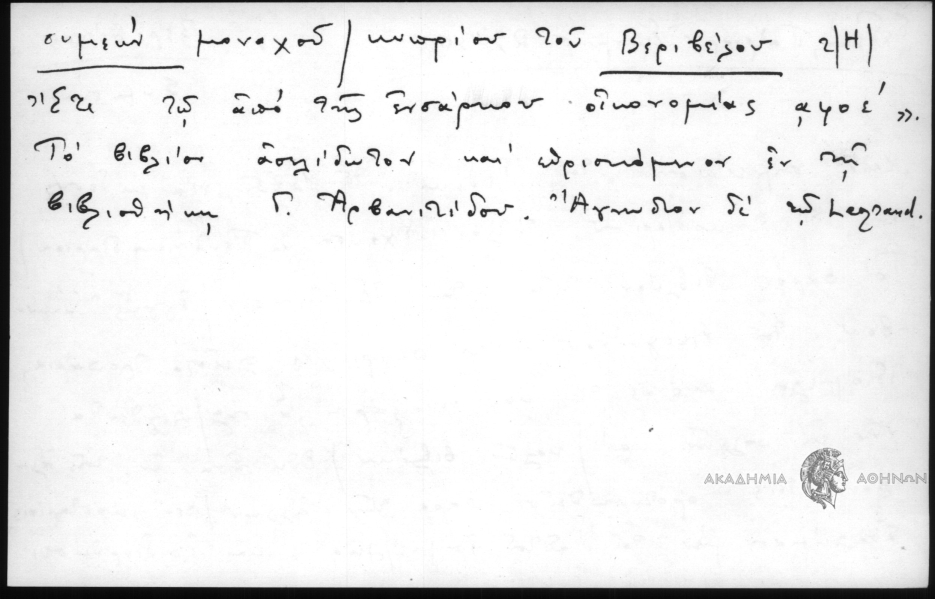 συμεών μοναχοῦ / κυπρίου τοῦ Βεριβέλου τ|Η|
Ἔτει τῷ ἀπό τῆς ἐνσάρκου οἰκονομίας ͵αψοέ ».
Τό βιβλίον ἀσελίδωτον καί εὑρισκόμενον ἐν τῇ
βιβλιοθήκῃ Γ. Ἀρβανιτίδου. Ἄγνωστον δέ τῷ Legrand.
ΑΚΑΔΗΜΙΑ ΑΘΗΝΩΝ